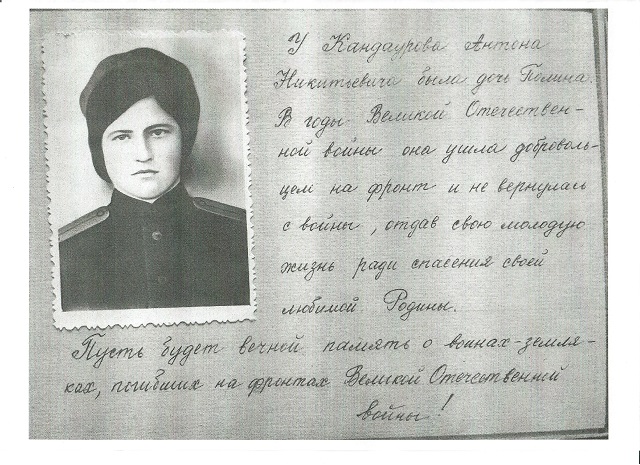 У Кандаурова Антона
Никитьевича была дочь Полина.
В годы Великой Отечествен-
ной войны она ушла доброволь-
цем на фронт и не вернулась
с войны, отдав свою молодую
жизнь ради спасения своей
любимой Родины.
Пусть будет вечной память о воинах-земля-
ках, погибших на фронтах Великой Отечественной
войны!